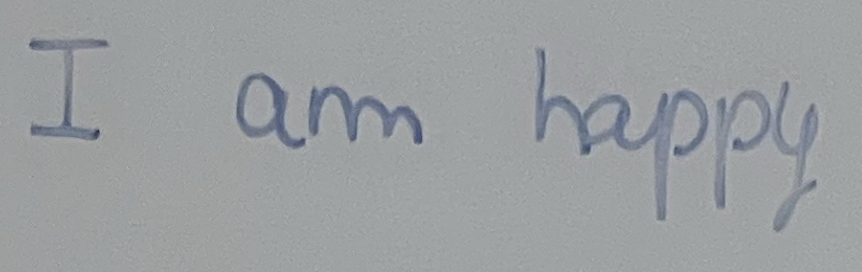 I am happy